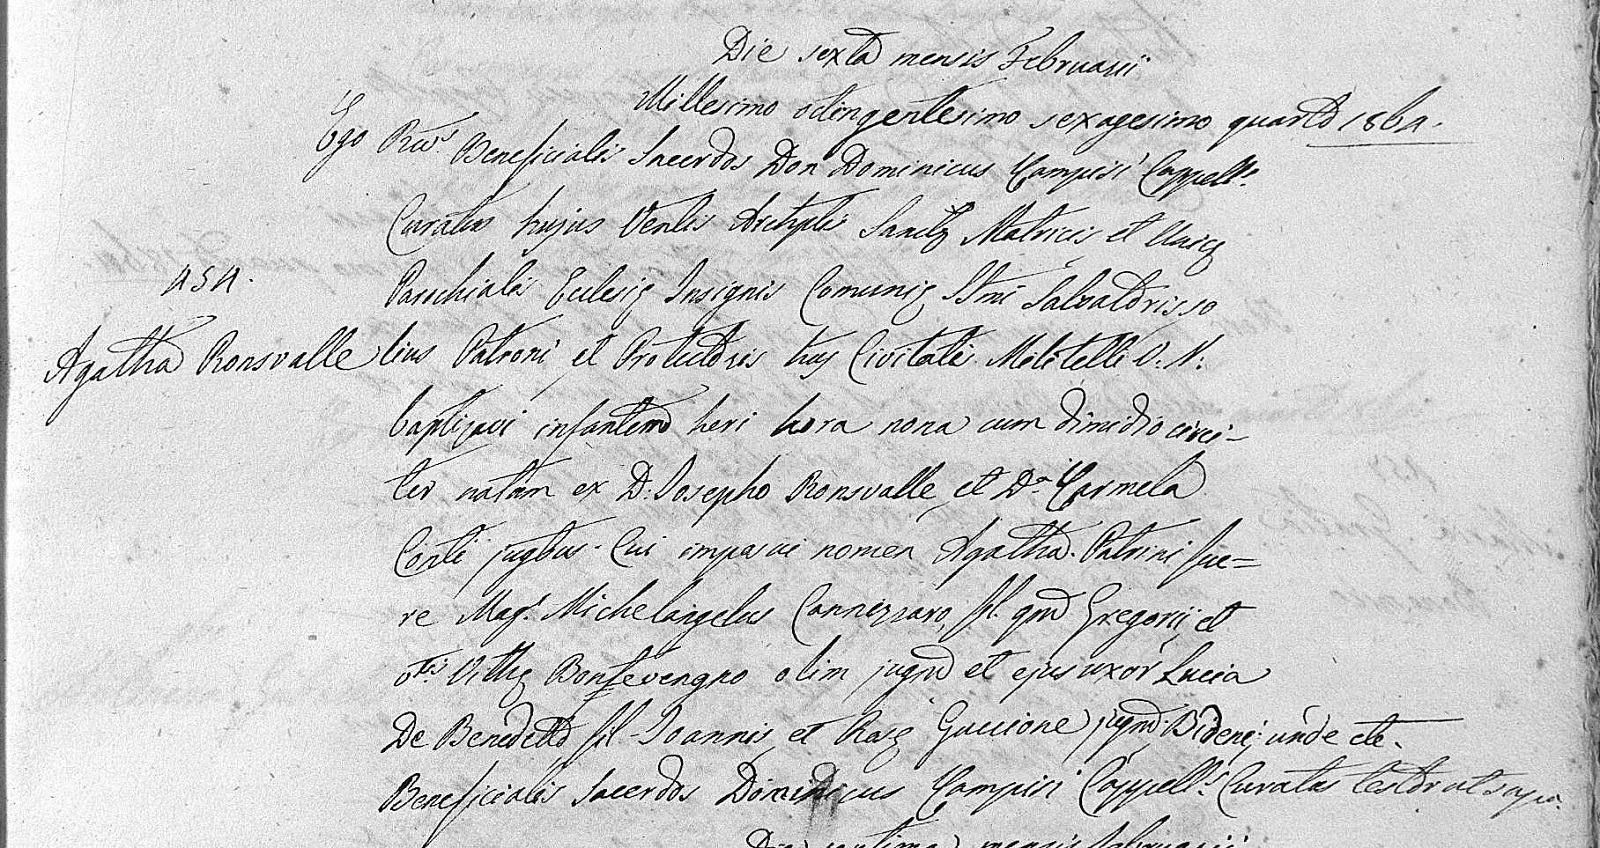 Die sexta mensis Februarii
Millesimo octingentesimo sexagesimo quarto 1864.
Ego Rev.s Beneficialis Sacerdos Don Dominicus Campisi Cappell.s
Curatus hujus Venlis Archiplis Sanctę Matricis et Unicę
454.
Parochialis Ecclesię Insignis Comunię SSmi Salvatoris so
Agatha Ronsvalle
lius Patroni et Protectoris huj Civitatis Militelli V. N.
baptizavi infantem heri hora nona cum dimidio circi-
ter natam ex D. Josepho Ronsvalle et D.a Carmela
Conti jugbus. Cui imposui nomen Agatha. Patrini fue=
re Mag.r Michelangelus Cannizzaro, fil. qmd Gregorii, et
Vittę Bontevengno olim jugm et ejus uxor Lucia
De Benedetto fil. Joannis et Rosę Guccione jugm. Bideni; unde etc.
Beneficialis Sacerdos Dominicus Campisi Cappell.s Curatus testor ut supa.
Die septima mensis Februarii